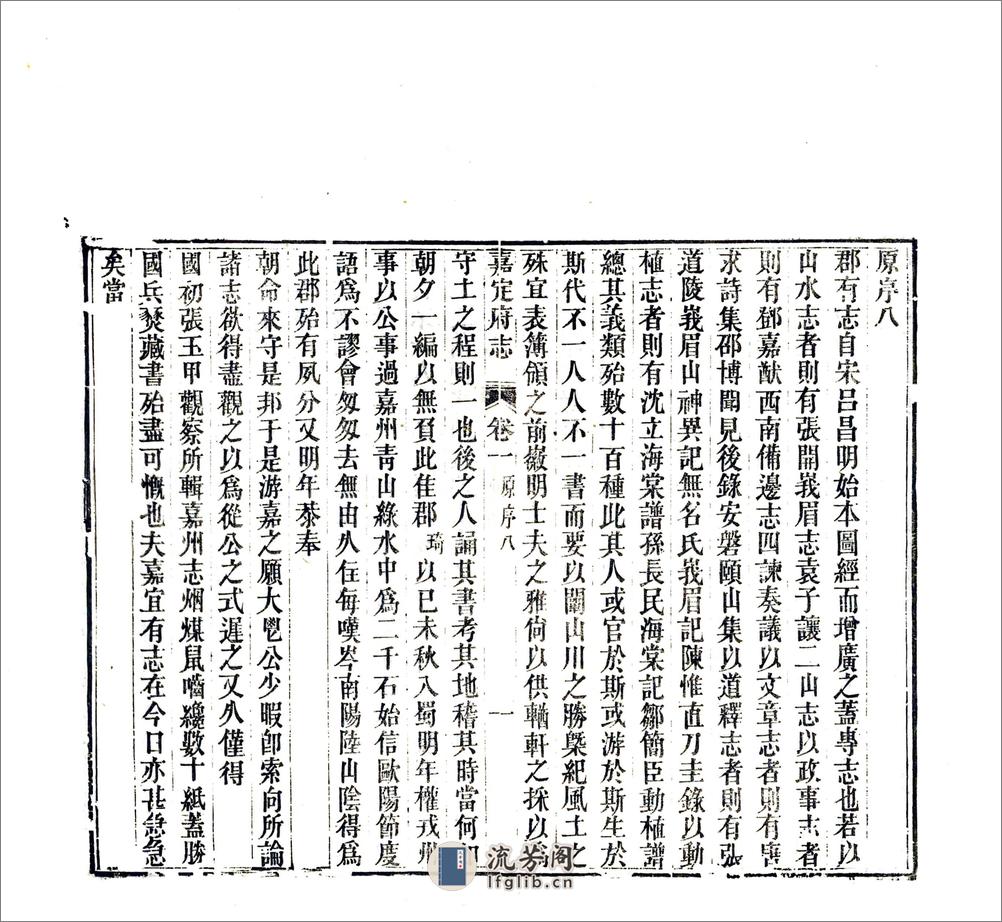 原序八
郡有志自宋呂昌明始本圖經而增廣之蓋專志也若以
山水志者則有張開峩眉志袁子讓二山志以政事志者
則有鄧嘉猷西南備邊志四諫奏議以文章志者則有唐
求詩集邵博聞見後錄安磐頤山集以道釋志者則有張
道陵峩眉山神異記無名氏峩眉記陳惟直刀圭錄以動
植志者則有沈立海棠譜孫長民海棠記鄒簡臣動植譜
總其義類殆數十百種此其人或官於斯或游於斯生於
斯代不一人人不一書而要以闡山川之勝槩紀風土之
殊宜表簿領之前徽明士夫之雅尙以供輶軒之採以爲
嘉定府志 卷一 原序八 一
守土之程則一也後之人誦其書考其地稽其時當何如
朝夕一編以無負此佳郡琦以已未秋入蜀明年權戎州
事以公事過嘉州靑山綠水中爲二千石始信歐陽節度
語爲不謬會匆匆去無由久住每嘆岑南陽陸山陰得爲
此郡殆有夙分又明年恭奉
朝命來守是邦于是游嘉之願大鬯公少暇卽索向所論
諸志欲得盡觀之以爲從公之式遲之又久僅得
國初張玉甲觀察所輯嘉州志烟煤鼠嚙纔數十紙蓋勝
國兵燹藏書殆盡可慨也夫嘉宜有志在今日亦甚急急
矣當
流芳阁
lfglib.cn